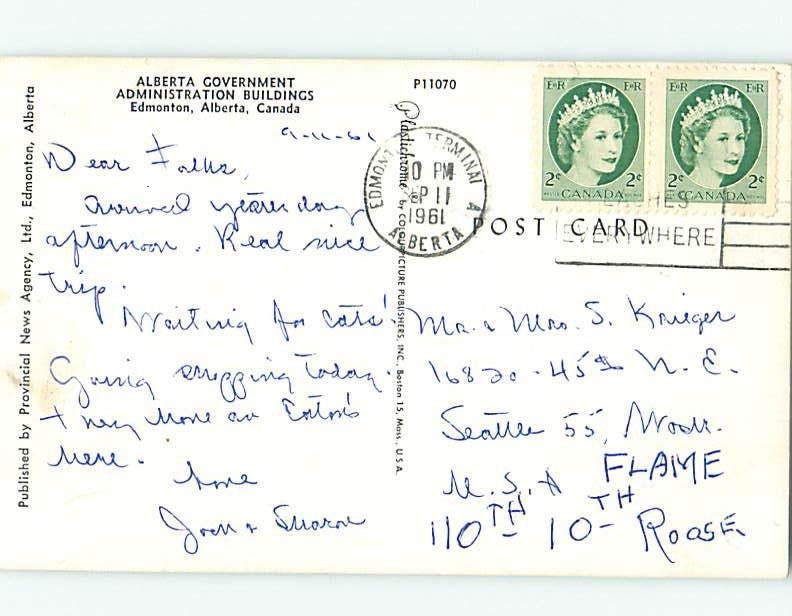 ALBERTA GOVERNMENT
ADMINISTRATION BUILDINGS
Edmonton, Alberta, Canada
P11070
Published by Provincial News Agency, Ltd., Edmonton, Alberta
Plastichrome® by COLOURPICTURE PUBLISHERS, INC., Boston 15, Mass., U.S.A.
9-11-61
Dear Folks,
arrived yesterday
afternoon. Real nice
trip.
Waiting for
Going shopping today.
+ they have an Eaton's
here.
Love
Joan + Sharon
EDMONTON TERMINAL A
PM
SEP 11
1961
ALBERTA
E R
2¢ CANADA 2¢
E R
2¢ CANADA 2¢
EVERYWHERE
POST CARD
Mr. & Mrs. S. Krieger
16820 - 45th N.E.
Seattle 55, Wash.
U.S.A
FLAME
110TH - 10-TH ROOSE